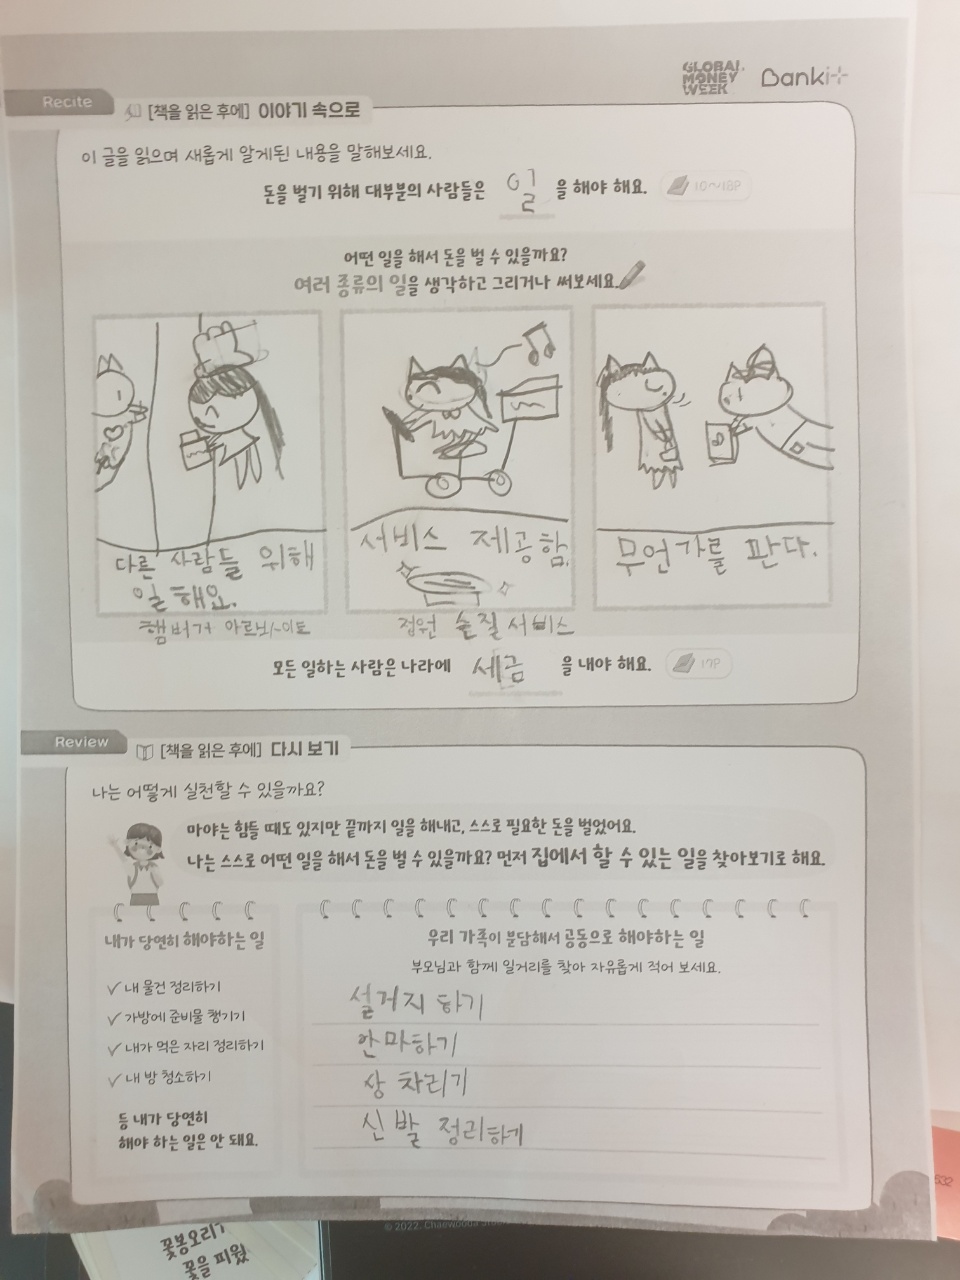 GLOBAL
MONEY
WEEK
Banki
Recite
[책을 읽은 후에] 이야기 속으로
이 글을 읽으며 새롭게 알게된 내용을 말해보세요.
돈을 벌기 위해 대부분의 사람들은 일 을 해야 해요. 10~18P
어떤 일을 해서 돈을 벌 수 있을까요?
여러 종류의 일을 생각하고 그리거나 써보세요.
다른 사람들 위해
일 해요.
햄버거 아르바이트
서비스 제공함.
점원 손질 서비스
무언가를 판다.
모든 일하는 사람은 나라에 세금 을 내야 해요. 17P
Review
[책을 읽은 후에] 다시 보기
나는 어떻게 실천할 수 있을까요?
마야는 힘들 때도 있지만 끝까지 일을 해내고, 스스로 필요한 돈을 벌었어요.
나는 스스로 어떤 일을 해서 돈을 벌 수 있을까요? 먼저 집에서 할 수 있는 일을 찾아보기로 해요.
내가 당연히 해야하는 일
✓ 내 물건 정리하기
✓ 가방에 준비물 챙기기
✓ 내가 먹은 자리 정리하기
✓ 내 방 청소하기
등 내가 당연히
해야 하는 일은 안 돼요.
우리 가족이 분담해서 공동으로 해야하는 일
부모님과 함께 일거리를 찾아 자유롭게 적어 보세요.
설거지 하기
안마하기
상 차리기
신발 정리하기
© 2022. Chaewooda
꽃봉오리가
꽃을 피웠
532